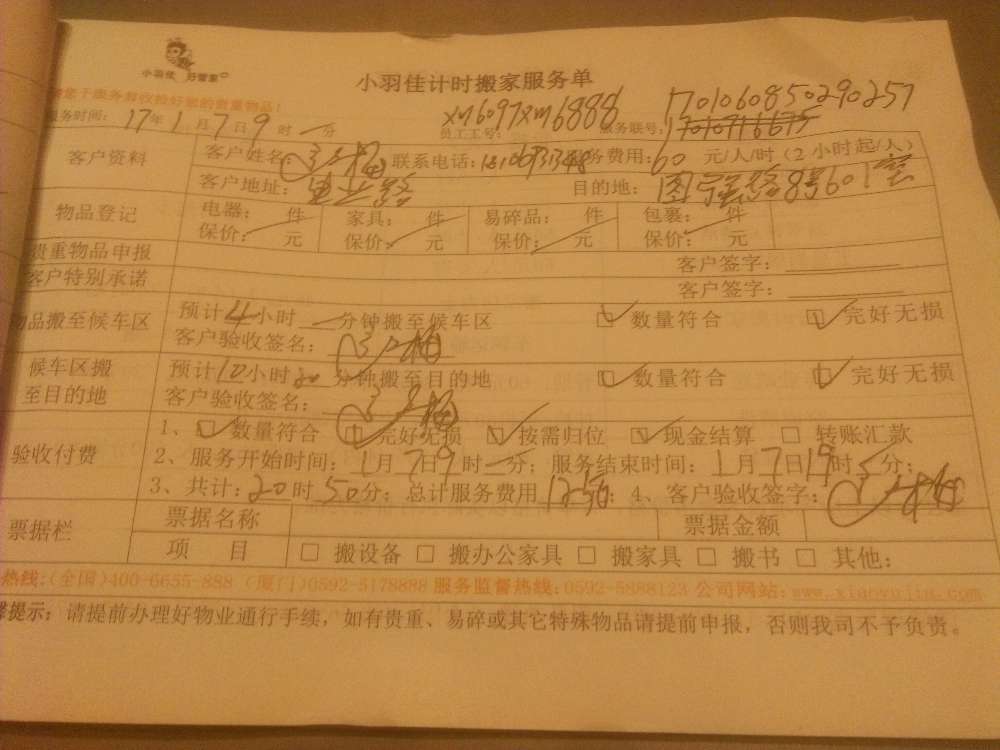 小羽佳 好管家
小羽佳计时搬家服务单
您于服务前收捡好您的贵重物品!
xm6097xm6888 170106085029025
服务时间: 17年1月7日9时一分 员工工号: 服务联号:
客户资料 客户姓名: 联系电话: 服务费用: 60 元/人/时(2小时起/人)
客户地址: 目的地: 8号601室
物品登记 电器: 件 家具: 件 易碎品: 件 包裹: 件
保价: 元 保价: 元 保价: 元 保价: 元
贵重物品申报 客户签字:
客户特别承诺 客户签字:
物品搬至候车区 预计4小时 分钟搬至候车区 数量符合 完好无损
客户验收签名:
候车区搬至目的地 预计10小时20分钟搬至目的地 数量符合 完好无损
客户验收签名:
验收付费 1、数量符合 完好无损 按需归位 现金结算 转账汇款
2、服务开始时间: 1月7日9时一分; 服务结束时间: 1月7日19时5分;
3、共计: 20时50分; 总计服务费用1250; 4、客户验收签字:
票据栏 票据名称 票据金额
项 目 搬设备 搬办公家具 搬家具 搬书 其他:
热线:(全国)400-6655-888 (厦门)0592-5178888 服务监督热线:0592-5888123 公司网站:www.xiaoyujia.com
馨提示: 请提前办理好物业通行手续,如有贵重、易碎或其它特殊物品请提前申报,否则我司不予负责。